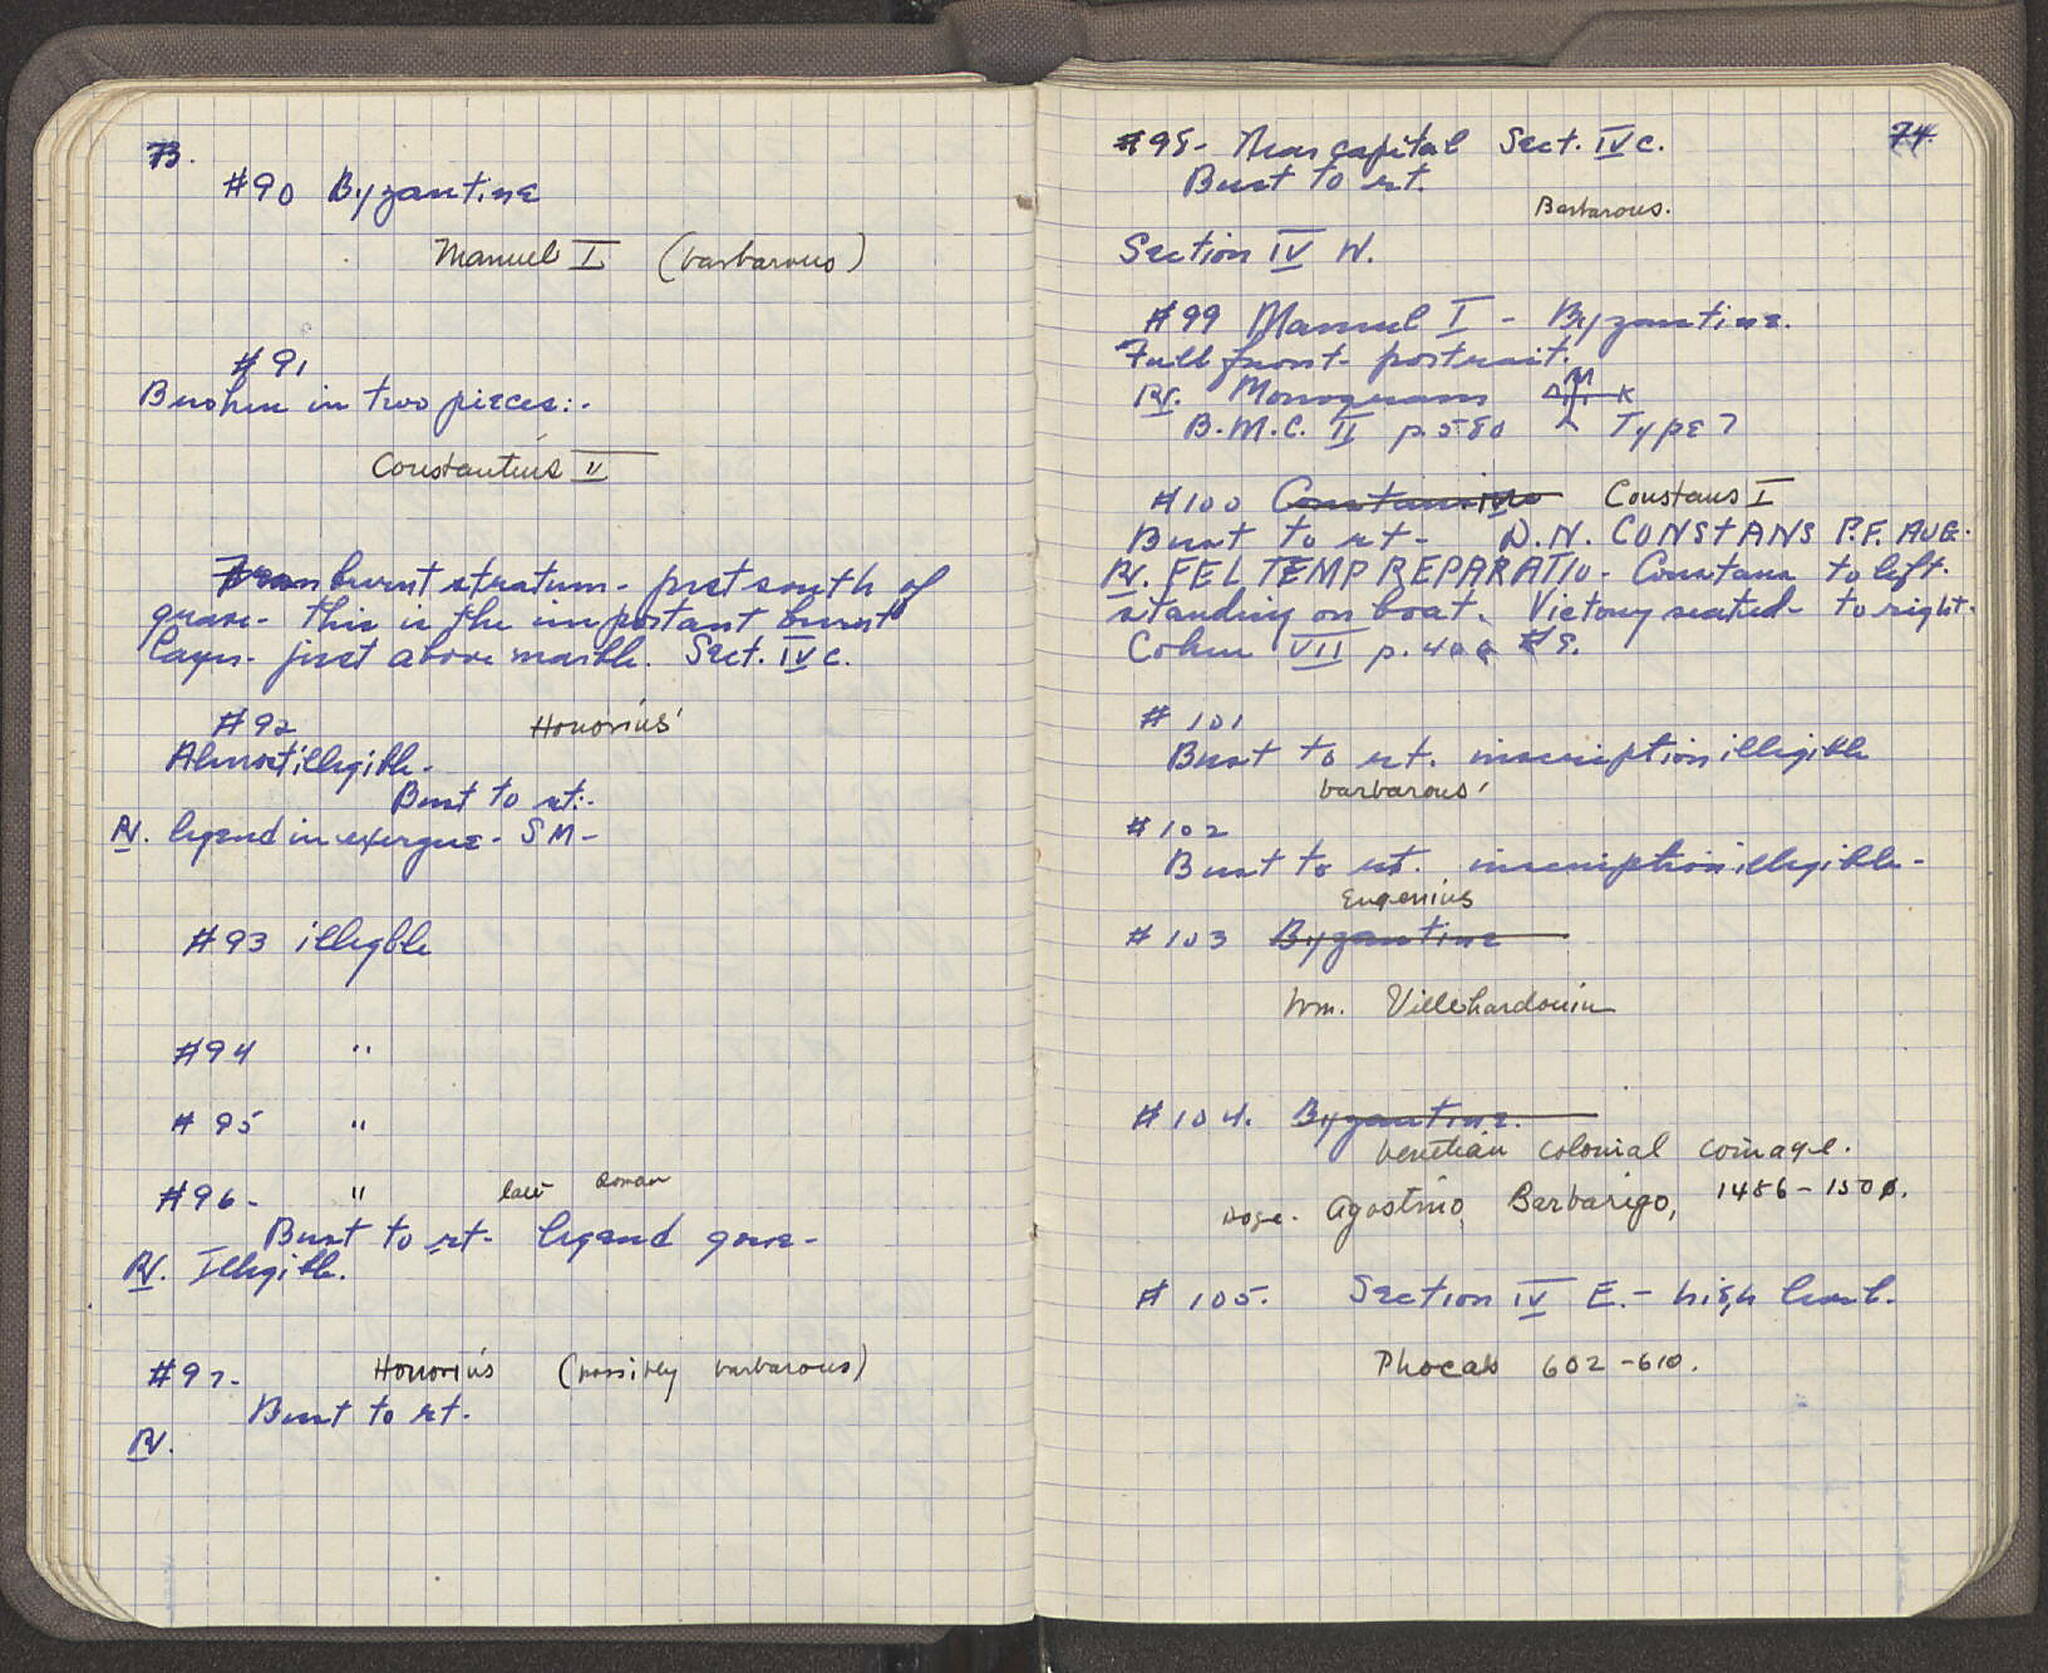 73.
#90 Byzantine
Manuel I (barbarous)
#91
Broken in two pieces:-
Constantius II
From burnt stratum - just south of
grave - this is the important burnt
layer - just above marble. Sect. IV c.
#92 Honorius
Almost illegible.
Bust to rt:-
Rv. legend in exergue - SM -
#93 illegible
#94 "
#95 "
#96 - " late Roman
Bust to rt - legend gone -
Rv. Illegible.
#97 - Honorius (possibly barbarous)
Bust to rt.
Rv.
74.
#98 - Near capital Sect. IV c.
Bust to rt.
Barbarous.
Section IV W.
#99 Manuel I - Byzantine.
Full front - portrait.
Rv. Monogram M K
B.M.C. II p. 580 Type 7
#100 Constantine Constans I
Bust to rt - D.N. CONSTANS P.F. AUG.
Rv. FEL TEMP REPARATIO - Constans to left.
standing on boat. Victory seated - to right.
Cohen VII p. 406 #9.
# 101
Bust to rt. inscription illegible
barbarous
# 102
Bust to rt. inscription illegible -
Eugenius
# 103 Byzantine
Wm. Villehardouin
# 104. Byzantine.
Venetian colonial coinage.
Doge. Agostino Barbarigo, 1486 - 1501.
# 105. Section IV E. - high level.
Phocas 602 - 610.